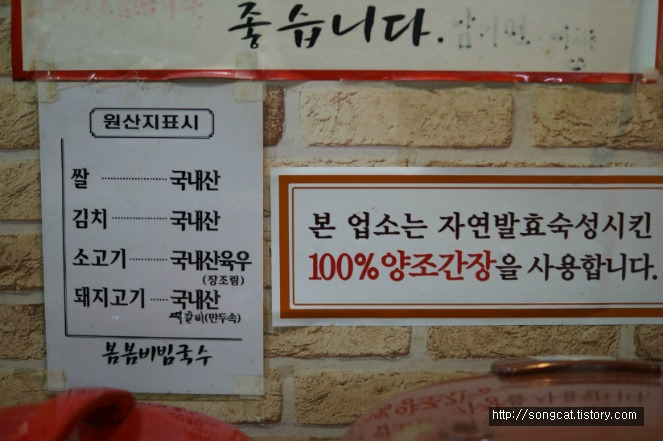 좋습니다.
원산지표시
쌀 ········ 국내산
김치 ······· 국내산
소고기 ····· 국내산육우
(장조림)
돼지고기 ···· 국내산
떡갈비(만두속)
봄봄비빔국수
본 업소는 자연발효숙성시킨
100% 양조간장을 사용합니다.
http://songcat.tistory.com